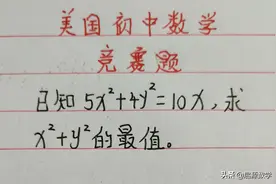 美国初中数学
竞赛题
已知 5x²+4y²=10x, 求
x²+y²的最值。
头条 @启颜数学